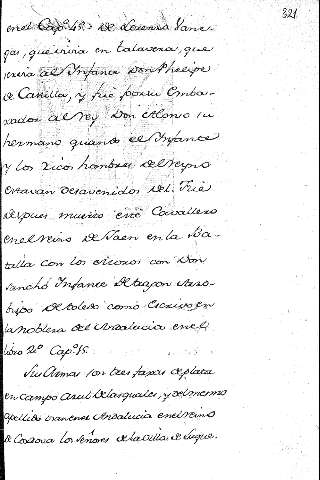 321
en el Cap.º 45. De Lorenzo Vane-
gas, que vivia en talavera, que
servia al Infante Don Phelipe
de Castilla, y fué por su Emba-
xador al Rey Don Alonso su
hermano quando el Infante
y los ricos hombres del Reyno
estavan desavenidos del. Fué
despues muerto este Cavallero
en el reino de Jaen en la Ba-
talla con los moros con Don
Sancho Infante de Aragon Arzo-
bispo de toledo como escrivo en
la nobleza del Andalucia en el
libro 2º Cap.º 15.
Sus Armas son tres faxas de plata
en campo azul de las quales, y del mismo
apellido usan en el Andalucia en el reino
de Cordova los señores de la villa de Luque.